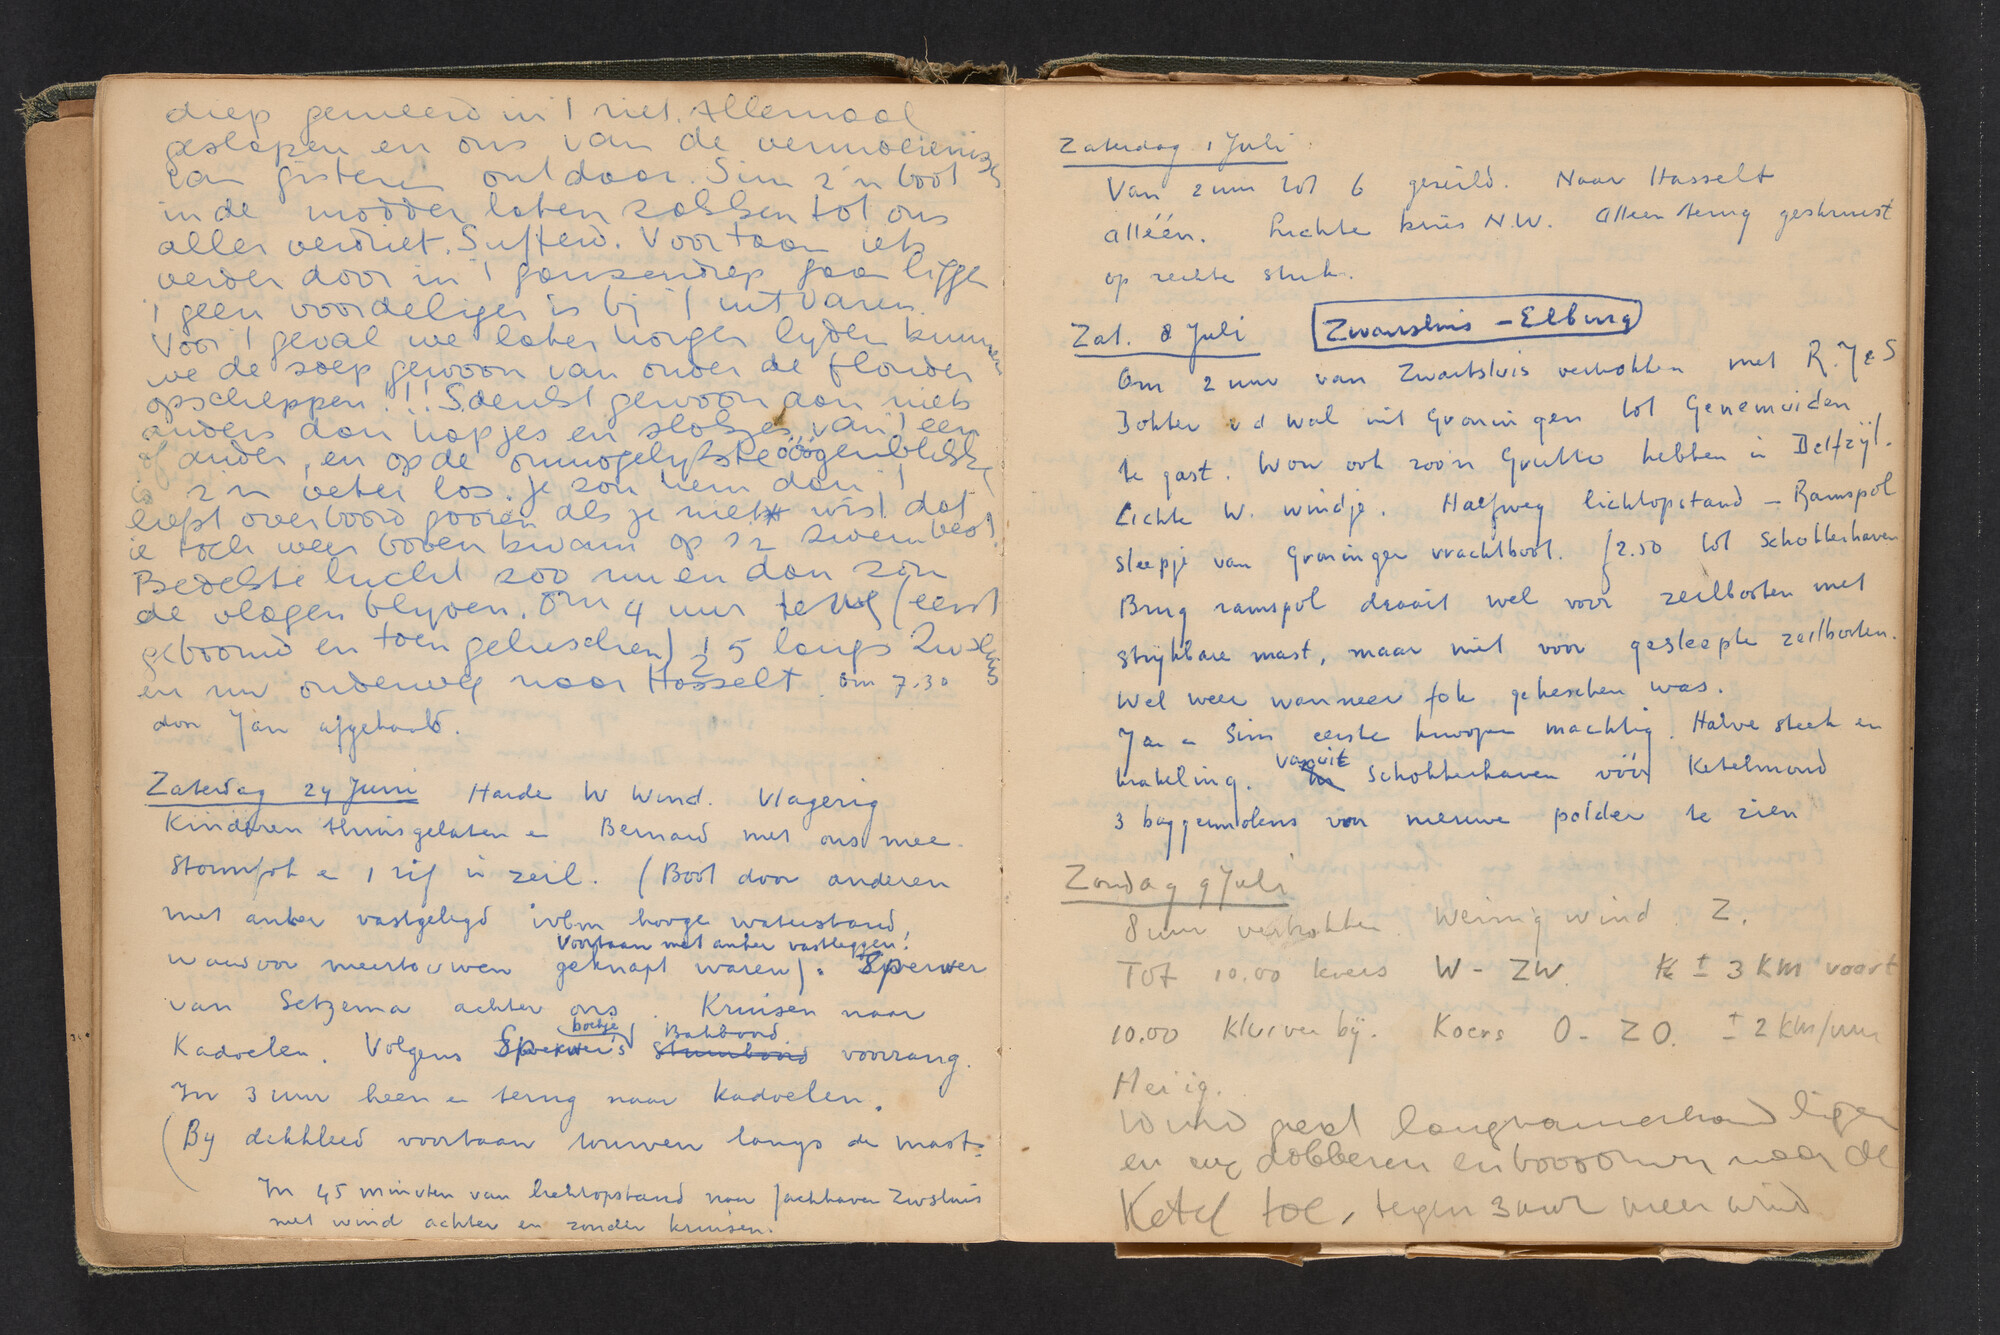 diep gemeerd in 't riet. Allemaal
geslapen en ons van de vermoeienissen
van gisteren ontdaan. Sim z'n boot
in de modder laten zakken tot ons
aller verdriet. Sufferd. Voortaan iets
verder door in 't ganzendiep gaan liggen
't geen voordeliger is bij 't uitvaren.
Voor 't geval we later honger lyden kunnen
we de soep gewoon van onder de
opscheppen!!! S. denkt gewoon aan niets
anders dan hapjes en slokjes van 't een
of ander, en op de onmogelykste ooogenblikken
z'n veter los. je zou hem dan 't
liefst overboord gooien als je niet wist dat
ie toch weer boven kwam op z'n zwemvest.
Bedekte lucht zoo nu en dan zon
de vlagen blyven. Om 4 uur terug (eerst
geboomd en toen geheschen) ½ 5 langs Zwsluis
en nu onderweg naar Hasselt. om 7.30
door Jan afgehaald.
Zaterdag 24 Juni Harde W Wind. Vlagerig
Kinderen thuisgelaten en Bernard met ons mee.
Stormfok en 1 rif in zeil. (Boot door anderen
met anker vastgelegd ivbm hooge waterstand,
Voortaan met anker vastleggen!
waardoor meertouwen geknapt waren). Sperwer
van Setzema achter ons. Kruisen naar
boekje Bakboord
Kadoelen. Volgens Sperwer's Stuurboord voorrang.
In 3 uur heen en terug naar Kadoelen.
(By dekkleed voortaan touwen langs de mast.
In 45 minuten van lichtopstand naar Jachthaven Zwsluis
met wind achter en zonder kruisen.
Zaterdag 1 Juli
Van 2 uur tot 6 gezeild. Naar Hasselt
alléén. Lichte bries N.W. Alleen terug gekruist
op rechte stuk.
Zat. 8 Juli Zwartsluis – Elburg
Om 2 uur van Zwartsluis vertrokken met R. J & S
Dokter v d Wal uit Groningen tot Genemuiden
te gast. Wou ook zoo'n Grutto hebben in Delfzijl.
Lichte W. windje. Halfweg lichtopstand – Ramspol
sleepje van Groninger vrachtboot. f2.50 tot Schokkerhaven
Brug ramspol draait wel voor zeilboten met
strijkbare mast, maar niet voor gesleepte zeilboten.
Wel weer wanneer fok geheschen was.
Jan en Sim eerste knoopen machtig. Halve steek en
krakeling. vanuit Schokkerhaven vóór Ketelmond
3 baggermolens voor nieuwe polder te zien
Zondag 9 Juli
8 uur vertrokken. Weinig wind. Z.
Tot 10.00 koers W - ZW. ± 3 KM vaart
10.00 Kluiver bij. Koers O - ZO. ± 2 KM/uur
Heiig.
Wind gaat langzamerhand liggen
en wij dobberen en boooomen naar de
Ketel toe, tegen 3 uur meer wind